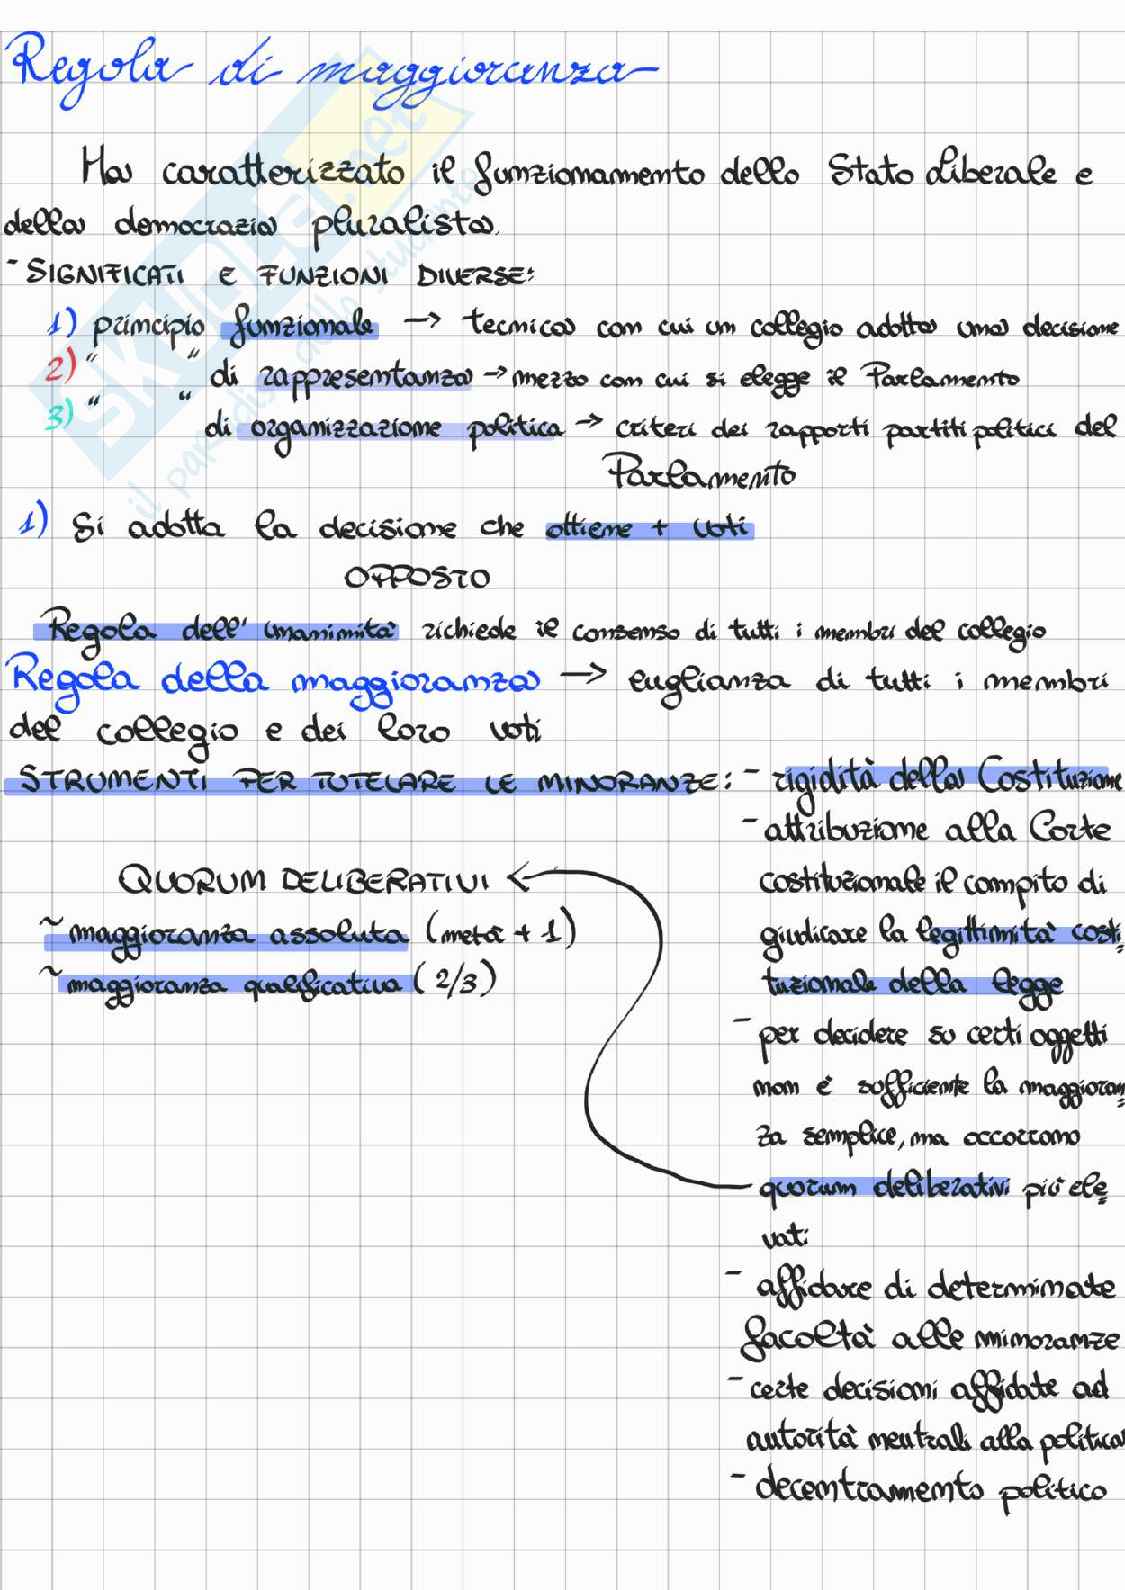 Regola di maggioranza
Ha caratterizzato il funzionamemto dello Stato liberale e
della democrazia pluralista.
- SIGNIFICATI E FUNZIONI DIVERSE:
1) principio funzionale → tecnica con cui un collegio adotta una decisione
2) " " di rappresentanza → mezzo con cui si elegge il Parlamento
3) " " di organizzazione politica → criteri dei rapporti partiti politici del
Parlamento
1) Si adotta la decisione che ottiene + voti
OPPOSTO
Regola dell'unanimità richiede il consenso di tutti i membri del collegio
Regola della maggioranza → euglianza di tutti i membri
del collegio e dei loro voti
STRUMENTI PER TUTELARE LE MINORANZE: - rigidità della Costituzione
- attribuzione alla Corte
QUORUM DELIBERATIVI ← costituzionale il compito di
~ maggioranza assoluta (metà + 1) giudicare la legittimità costi
~ maggioranza qualificativa (2/3) tuzionale della legge
- per decidere su certi oggetti
non è sufficiente la maggioran
za semplice, ma occorrono
quorum deliberativi più ele
vati
- affidare di determinate
facoltà alle minoranze
- certe decisioni affidate ad
autorità neutrali alla politica
- decentramento politico
SKUOLA.net
il paradiso dello studente